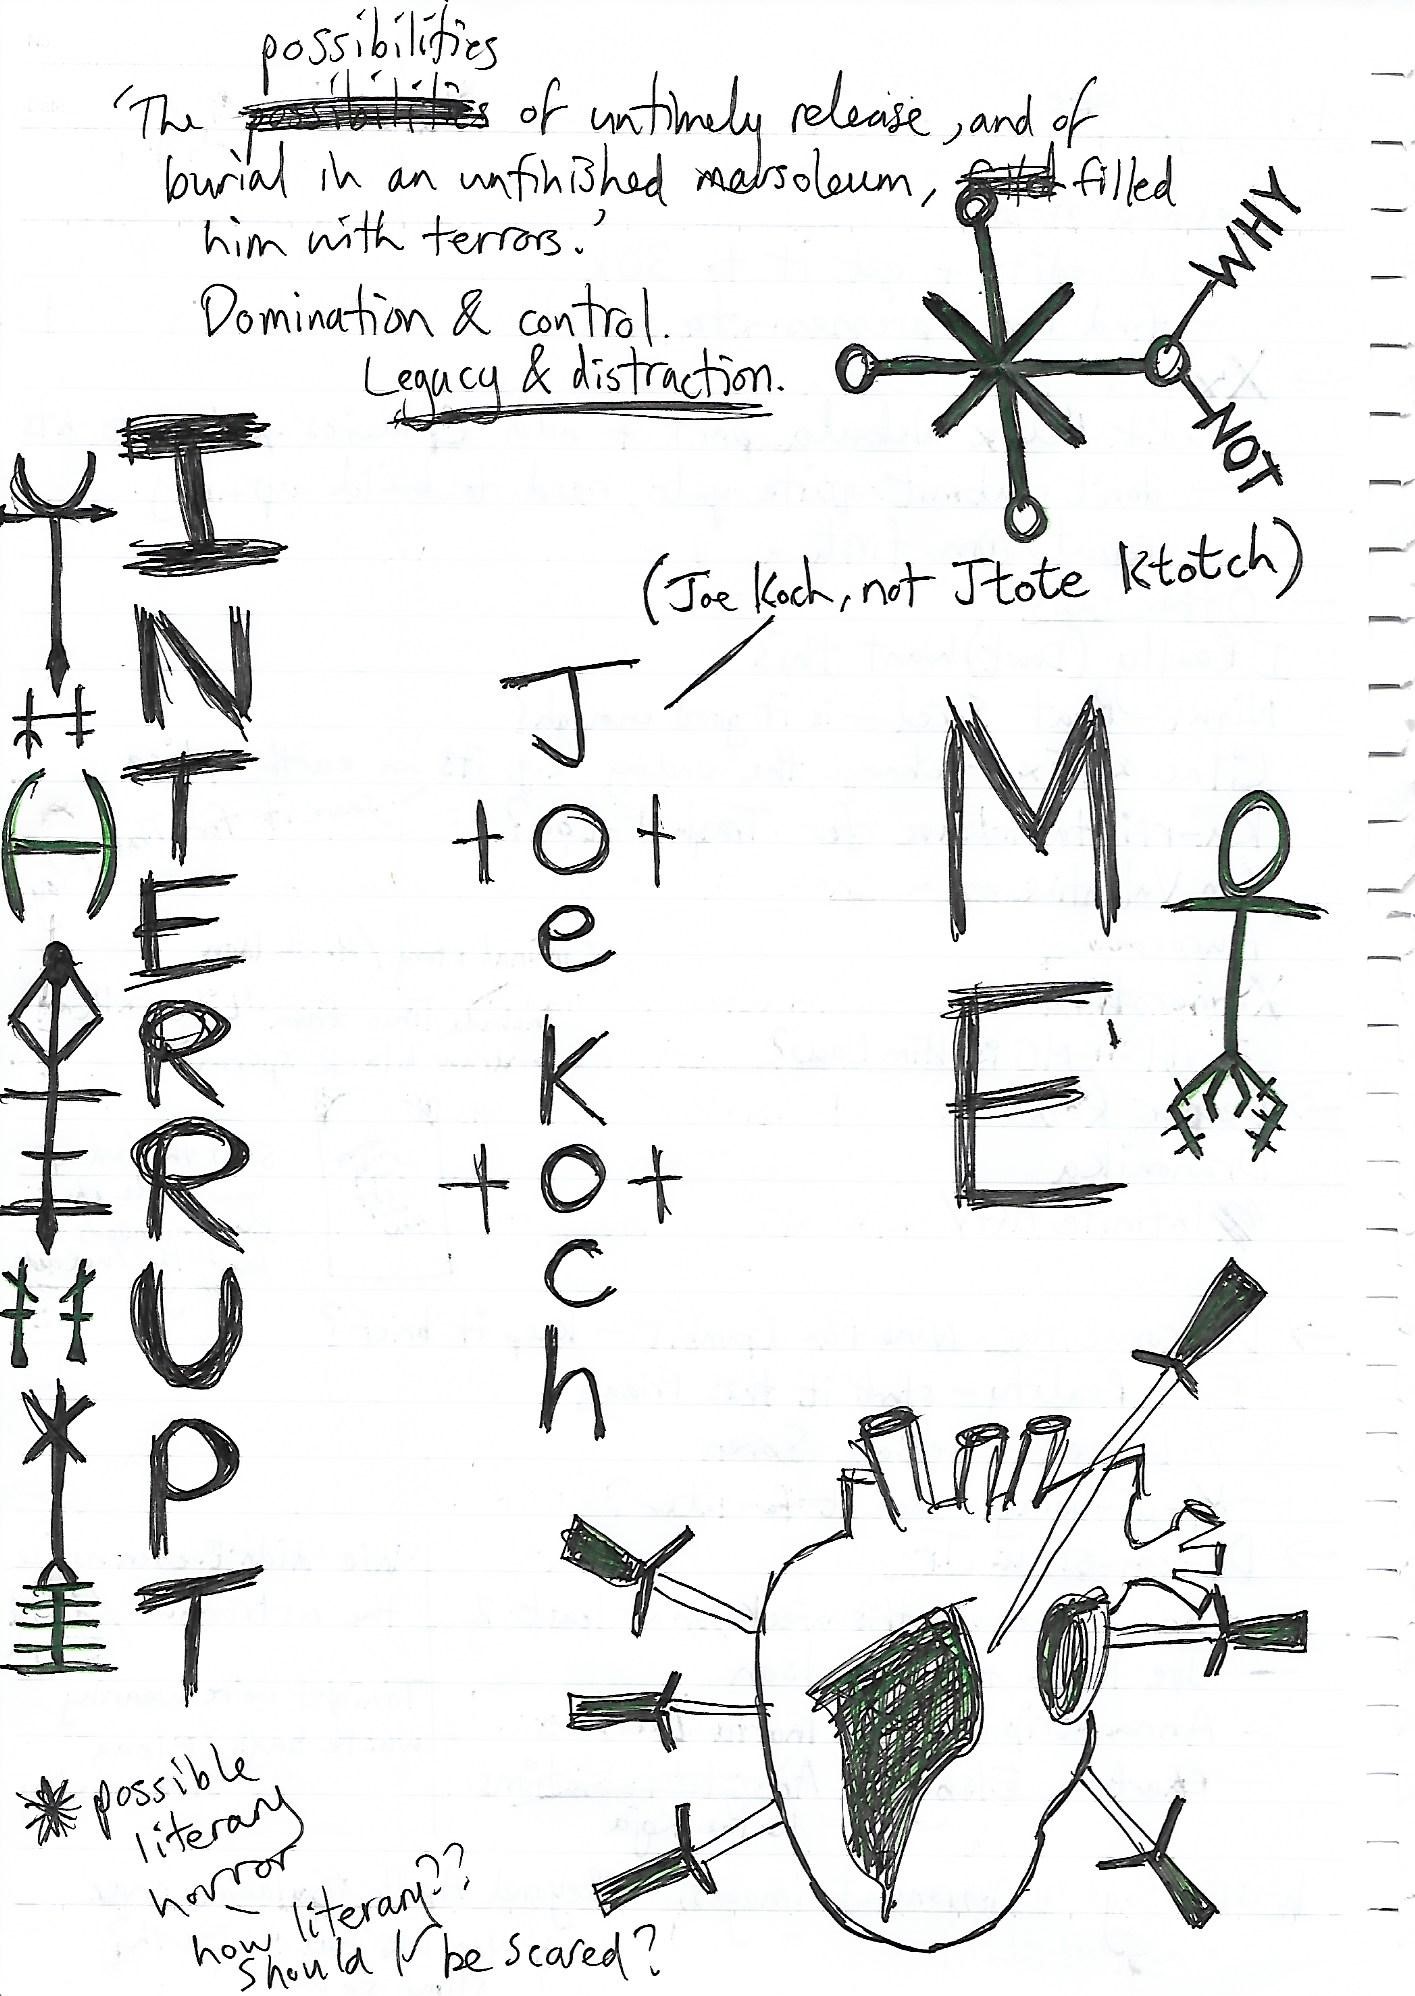 possibilities
'The possibilities of untimely release, and of
burial in an unfinished mausoleum, filled
him with terrors.'
Domination & control.
Legacy & distraction.
WHY
NOT
(Joe Koch, not Jtote Ktotch)
INTERRUPT
Joe Koch
ME
possible
literary
horror
how literary??
Should I be scared?